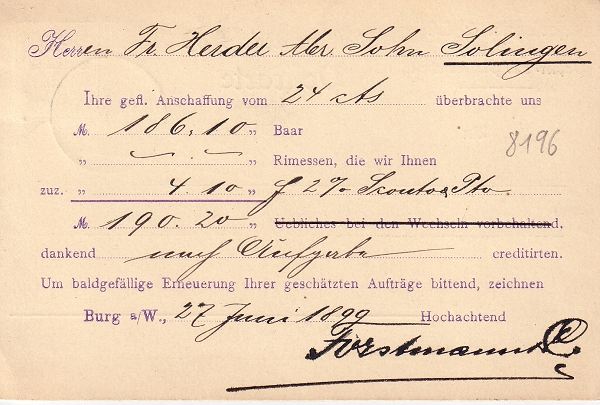 Herren Fr. Herder Abr. Sohn Solingen
Ihre gefl. Anschaffung vom 24 cts überbrachte uns
M. 186.10 „ Baar
„ —.— „ Rimessen, die wir Ihnen
8196
zuz. „ 4.10 „ f 2% Sconto & Pto
M. 190.20 „ Uebliches bei den Wechseln vorbehaltend,
dankend nach Aufgabe creditirten.
Um baldgefällige Erneuerung Ihrer geschätzten Aufträge bittend, zeichnen
Burg a/W., 27 Juni 1899 Hochachtend
Forstmann & Co.